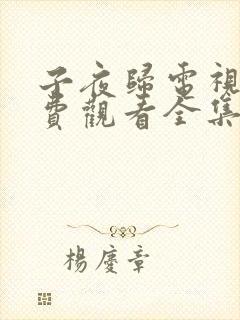 子夜歸電視
費觀看全集
楊慶章